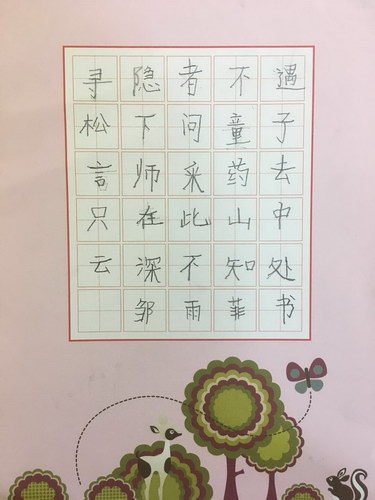 寻隐者不遇
松下问童子
言师采药去
只在此山中
云深不知处
邹雨菲书